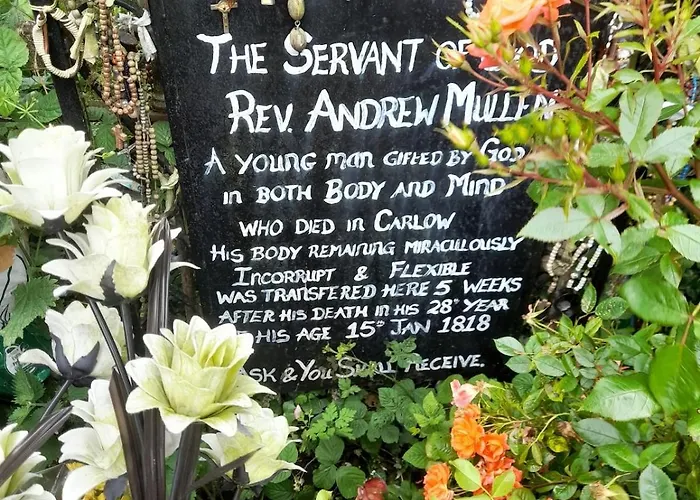 THE SERVANT OF GOD
REV. ANDREW MULLEN
A YOUNG MAN GIFTED BY GOD
IN BOTH BODY AND MIND
WHO DIED IN CARLOW
HIS BODY REMAINING MIRACULOUSLY
INCORRUPT & FLEXIBLE
WAS TRANSFERED HERE 5 WEEKS
AFTER HIS DEATH IN HIS 28th YEAR
OF HIS AGE 15th JAN 1818
ASK & YOU SHALL RECEIVE.